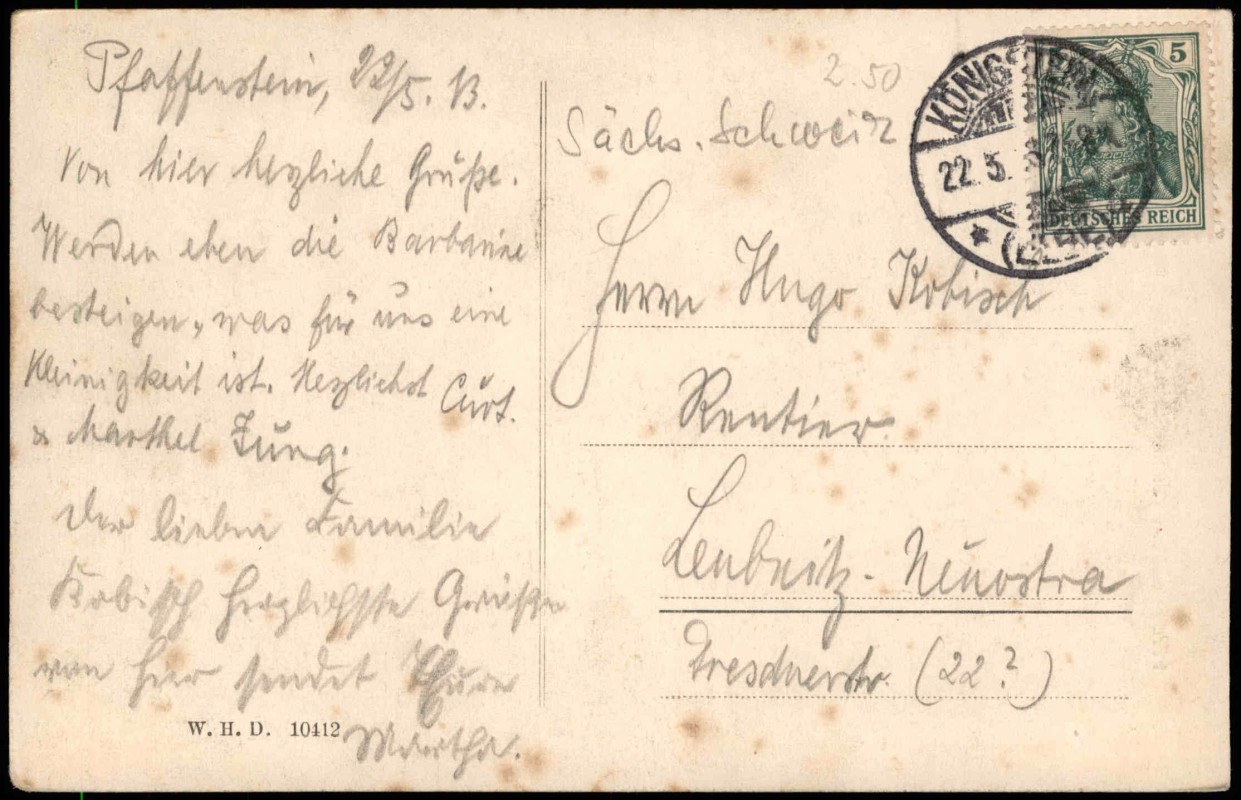 Pfaffenstein, 22/5. 13.
Von hier herzliche Grüße.
Werden eben die Barbarine
besteigen, was für uns eine
Kleinigkeit ist. Herzlichst
Curt.
& Marthel Jung.
Der lieben Familie
Kobisch herzlichste Grüße
von hier sendet Eure
Martha.
W. H. D. 10412
2.50
Sächs. Schweiz
KÖNIGSTEIN
22. 5.
5
DEUTSCHES REICH
Herrn Hugo Kobisch
Rentier.
Leubnitz-Neuostra
Dresdnerstr. (22?)